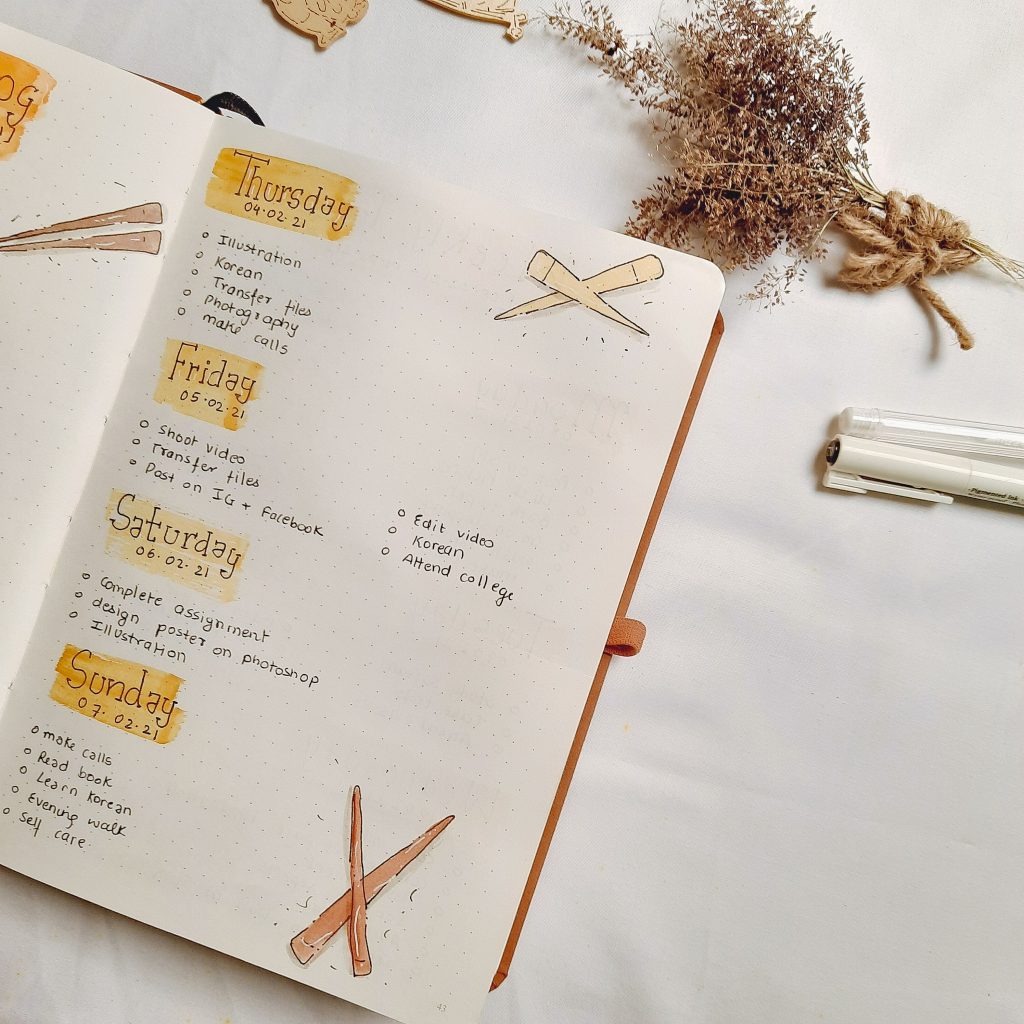 og
Thursday
04.02.21
Illustration
Korean
Transfer files
photography
make calls
Friday
05.02.21
shoot video
Transfer files
Post on IG + Facebook
Edit video
Korean
Attend college
Saturday
06.02.21
Complete assignment
design poster on photoshop
Illustration
Sunday
07.02.21
make calls
Read book
Learn Korean
Evening walk
Self care
43
Pigmented Ink